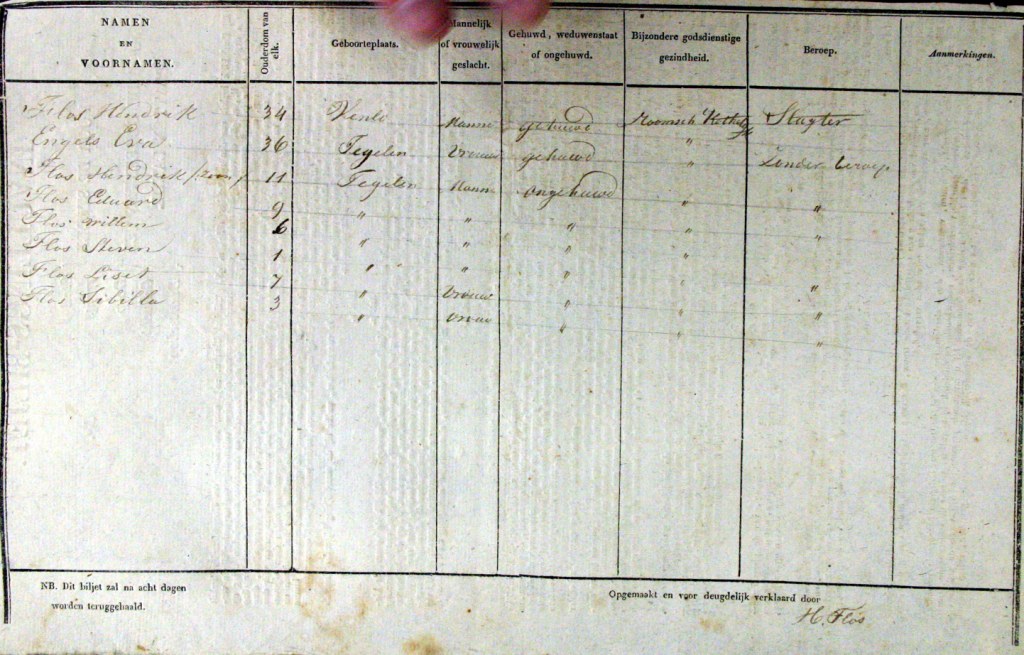 NAMEN EN VOORNAMEN. | Ouderdom van elk. | Geboorteplaats. | Mannelijk of vrouwelijk geslacht. | Gehuwd, weduwenstaat of ongehuwd. | Bijzondere godsdienstige gezindheid. | Beroep. | Aanmerkingen.
Flos Hendrik 34 Venlo Mann gehuwd Roomsch Kath Slagter
Engels Eva 36 Tegelen Vrouw gehuwd " Zonder beroep
Flos Hendrik /zoon/ 11 Tegelen Mann ongehuwd " "
Flos Eduard 9 " " " " "
Flos willem 6 " " " "
Flos Steven 1 " " "
Flos Liset 7 " vrouw " " "
Flos Sibilla 3 " vrouw " " "
NB. Dit biljet zal na acht dagen
worden teruggehaald.
Opgemaakt en voor deugdelijk verklaard door
H. Flos